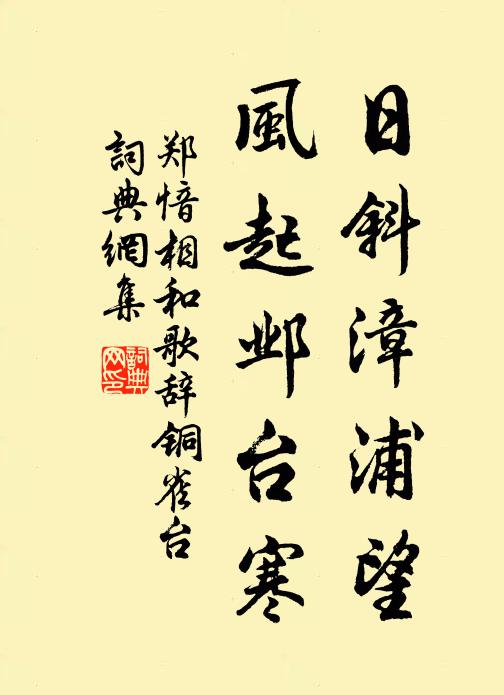 日斜漳浦望
風起邺台寒
郑愔相和歌辞铜雀台
詞典網集
詞典网印